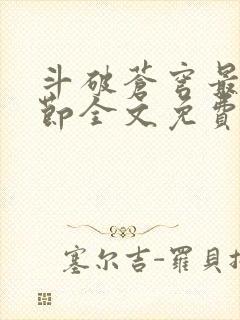 斗破苍穹最
節全文免費
塞尔吉-羅貝托